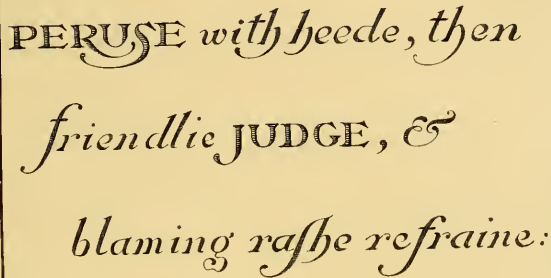 PERUSE with heede, then
friendlie JUDGE, &
blaming raſhe refraine: